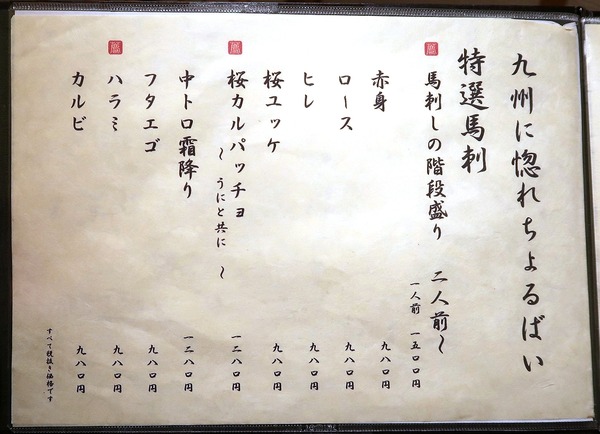 九州に惚れちょるばい
特選馬刺
馬刺しの階段盛り 二人前〜
一人前 一五〇〇円
赤身 九八〇円
ロース 九八〇円
ヒレ 九八〇円
桜ユッケ 九八〇円
桜カルパッチョ 一二八〇円
〜うにと共に〜
中トロ霜降り 一二八〇円
フタエゴ 九八〇円
ハラミ 九八〇円
カルビ 九八〇円
すべて税抜き価格です